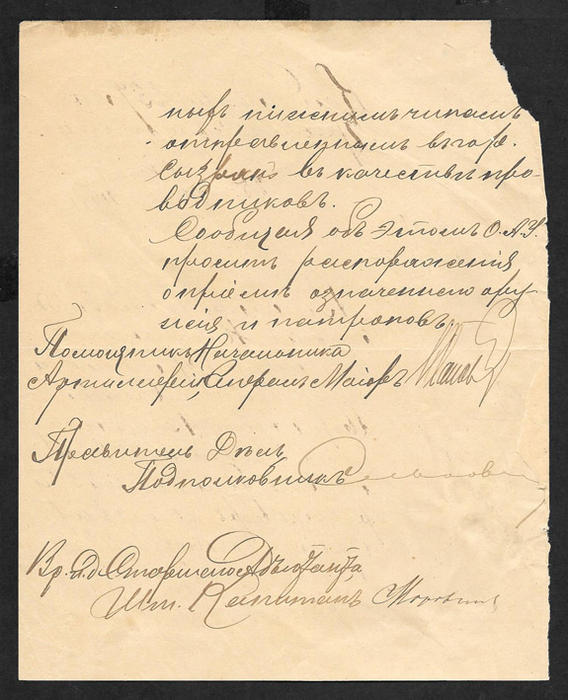 ныхъ нижнимъ чинамъ
отправленнымъ въ гор.
Сызрань въ качествѣ про-
водниковъ.
Сообщая объ этомъ О. А. У.
проситъ распоряженія
о пріемѣ означеннаго ору-
жія и патроновъ.
Помощникъ Начальника
Артиллеріи, Генералъ Маіоръ
Правитель Дѣлъ
Подполковникъ
Вр. и. д. Старшаго Адъютанта
Шт. Капитанъ